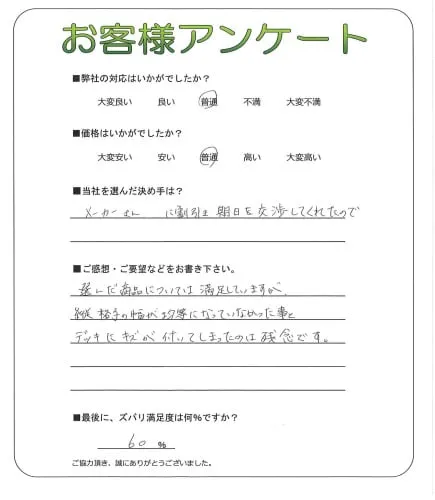 お客様アンケート
■弊社の対応はいかがでしたか？
大変良い 良い 普通 不満 大変不満
■価格はいかがでしたか？
大変安い 安い 普通 高い 大変高い
■当社を選んだ決め手は？
メーカーさん に割引き 期日を交渉してくれたので
■ご感想・ご要望などをお書き下さい。
選んだ商品については満足していますが、
縦格子の幅が均等になっていなかった事と
デッキにキズが付いてしまったのは残念です。
■最後に、ズバリ満足度は何％ですか？
60 ％
ご協力頂き、誠にありがとうございました。